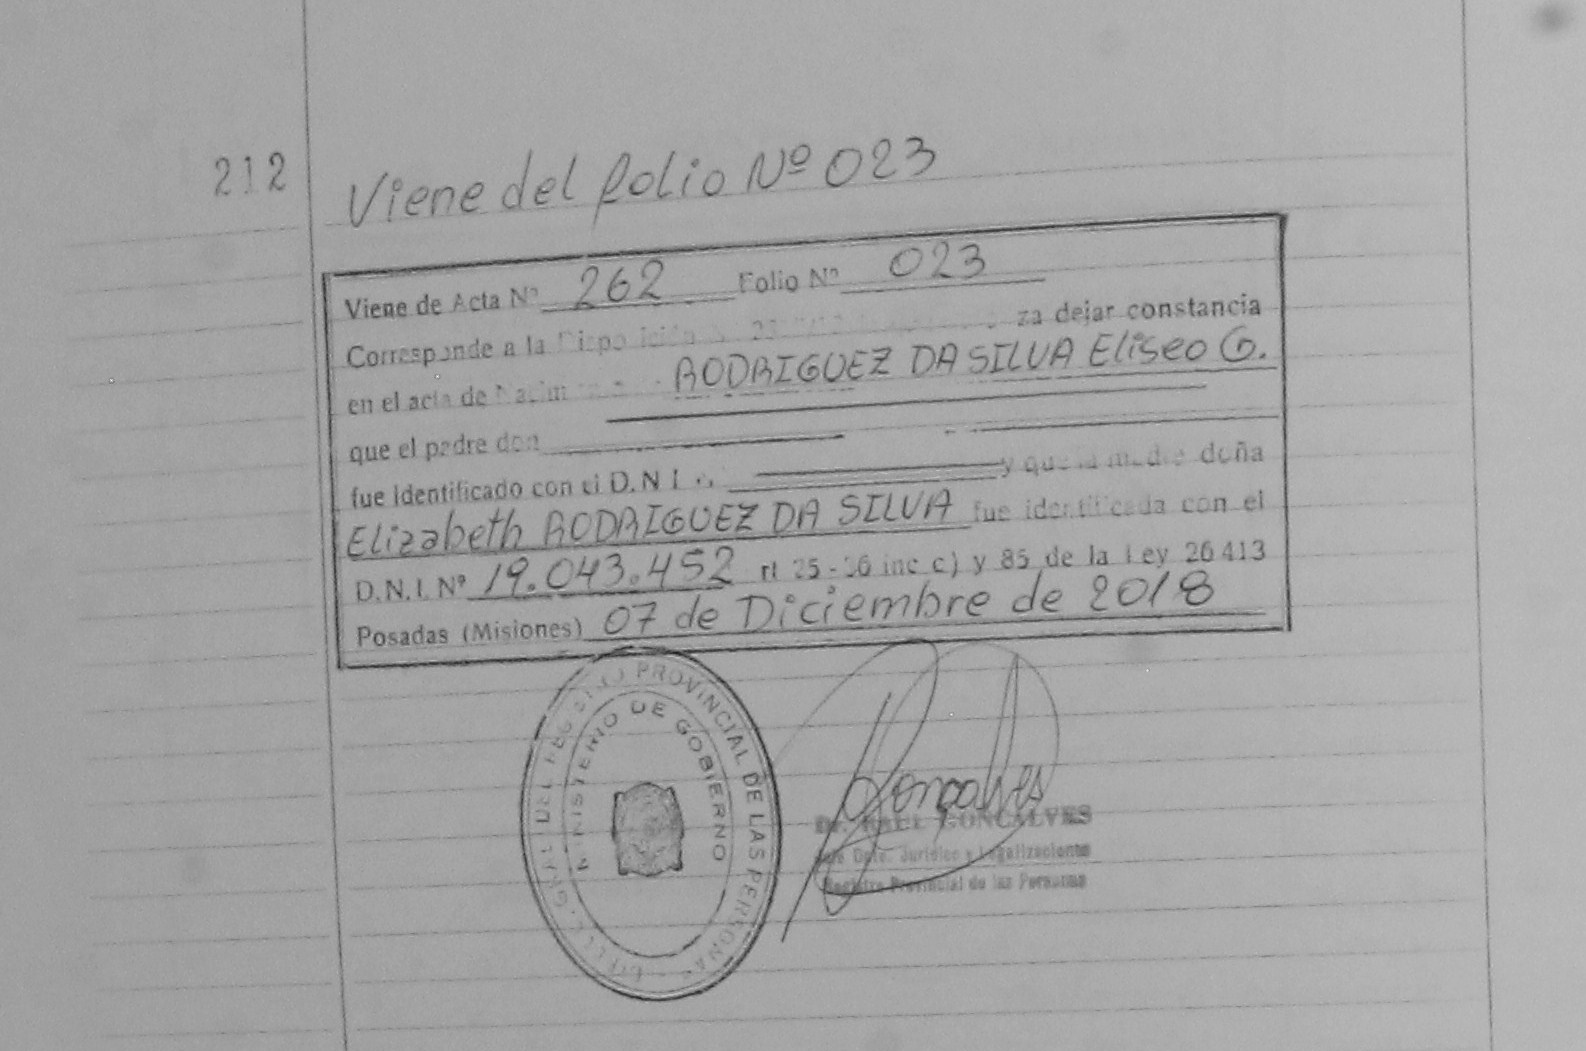 212
Viene del folio Nº 023
Viene de Acta Nº 262 Folio Nº 023
Corresponde a la za dejar constancia
en el acta de RODRIGUEZ DA SILVA Eliseo G.
que el padre don
fue identificado con el D.N.I. y que la madre doña
Elizabeth RODRIGUEZ DA SILVA fue identificada con el
D.N.I. Nº 19.043.452 rt 25-36 inc c) y 85 de la Ley 26 413
Posadas (Misiones) 07 de Diciembre de 2018
PROVINCIAL DE LAS PERSONAS
MINISTERIO DE GOBIERNO
Goncalves
Dr. RAUL GONCALVES
Jefe Dpto. Jurídico y Legalizaciones
Registro Provincial de las Personas